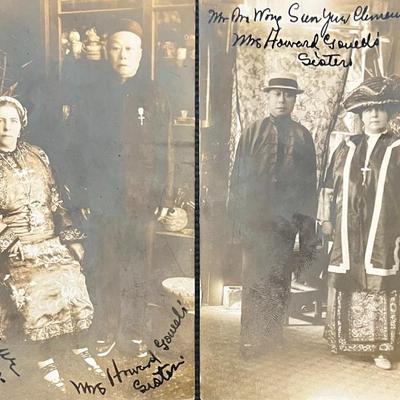 Mr Mrs Wong Sun Yue Clemens
Mrs Howard Gould's
Sister
Mrs Howard Gould's
Sister.